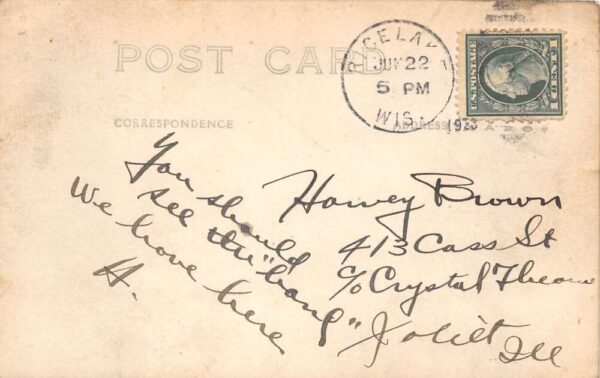 POST CARD
RICE LAKE
JUN 22
5 PM
WIS.
1923
U.S. POSTAGE
1 CENT 1
CORRESPONDENCE
ADDRESS
You should
see the "band"
We have here
H.
Harvey Brown
413 Cass St
c/o Crystal Theatre
Joliet
Ill